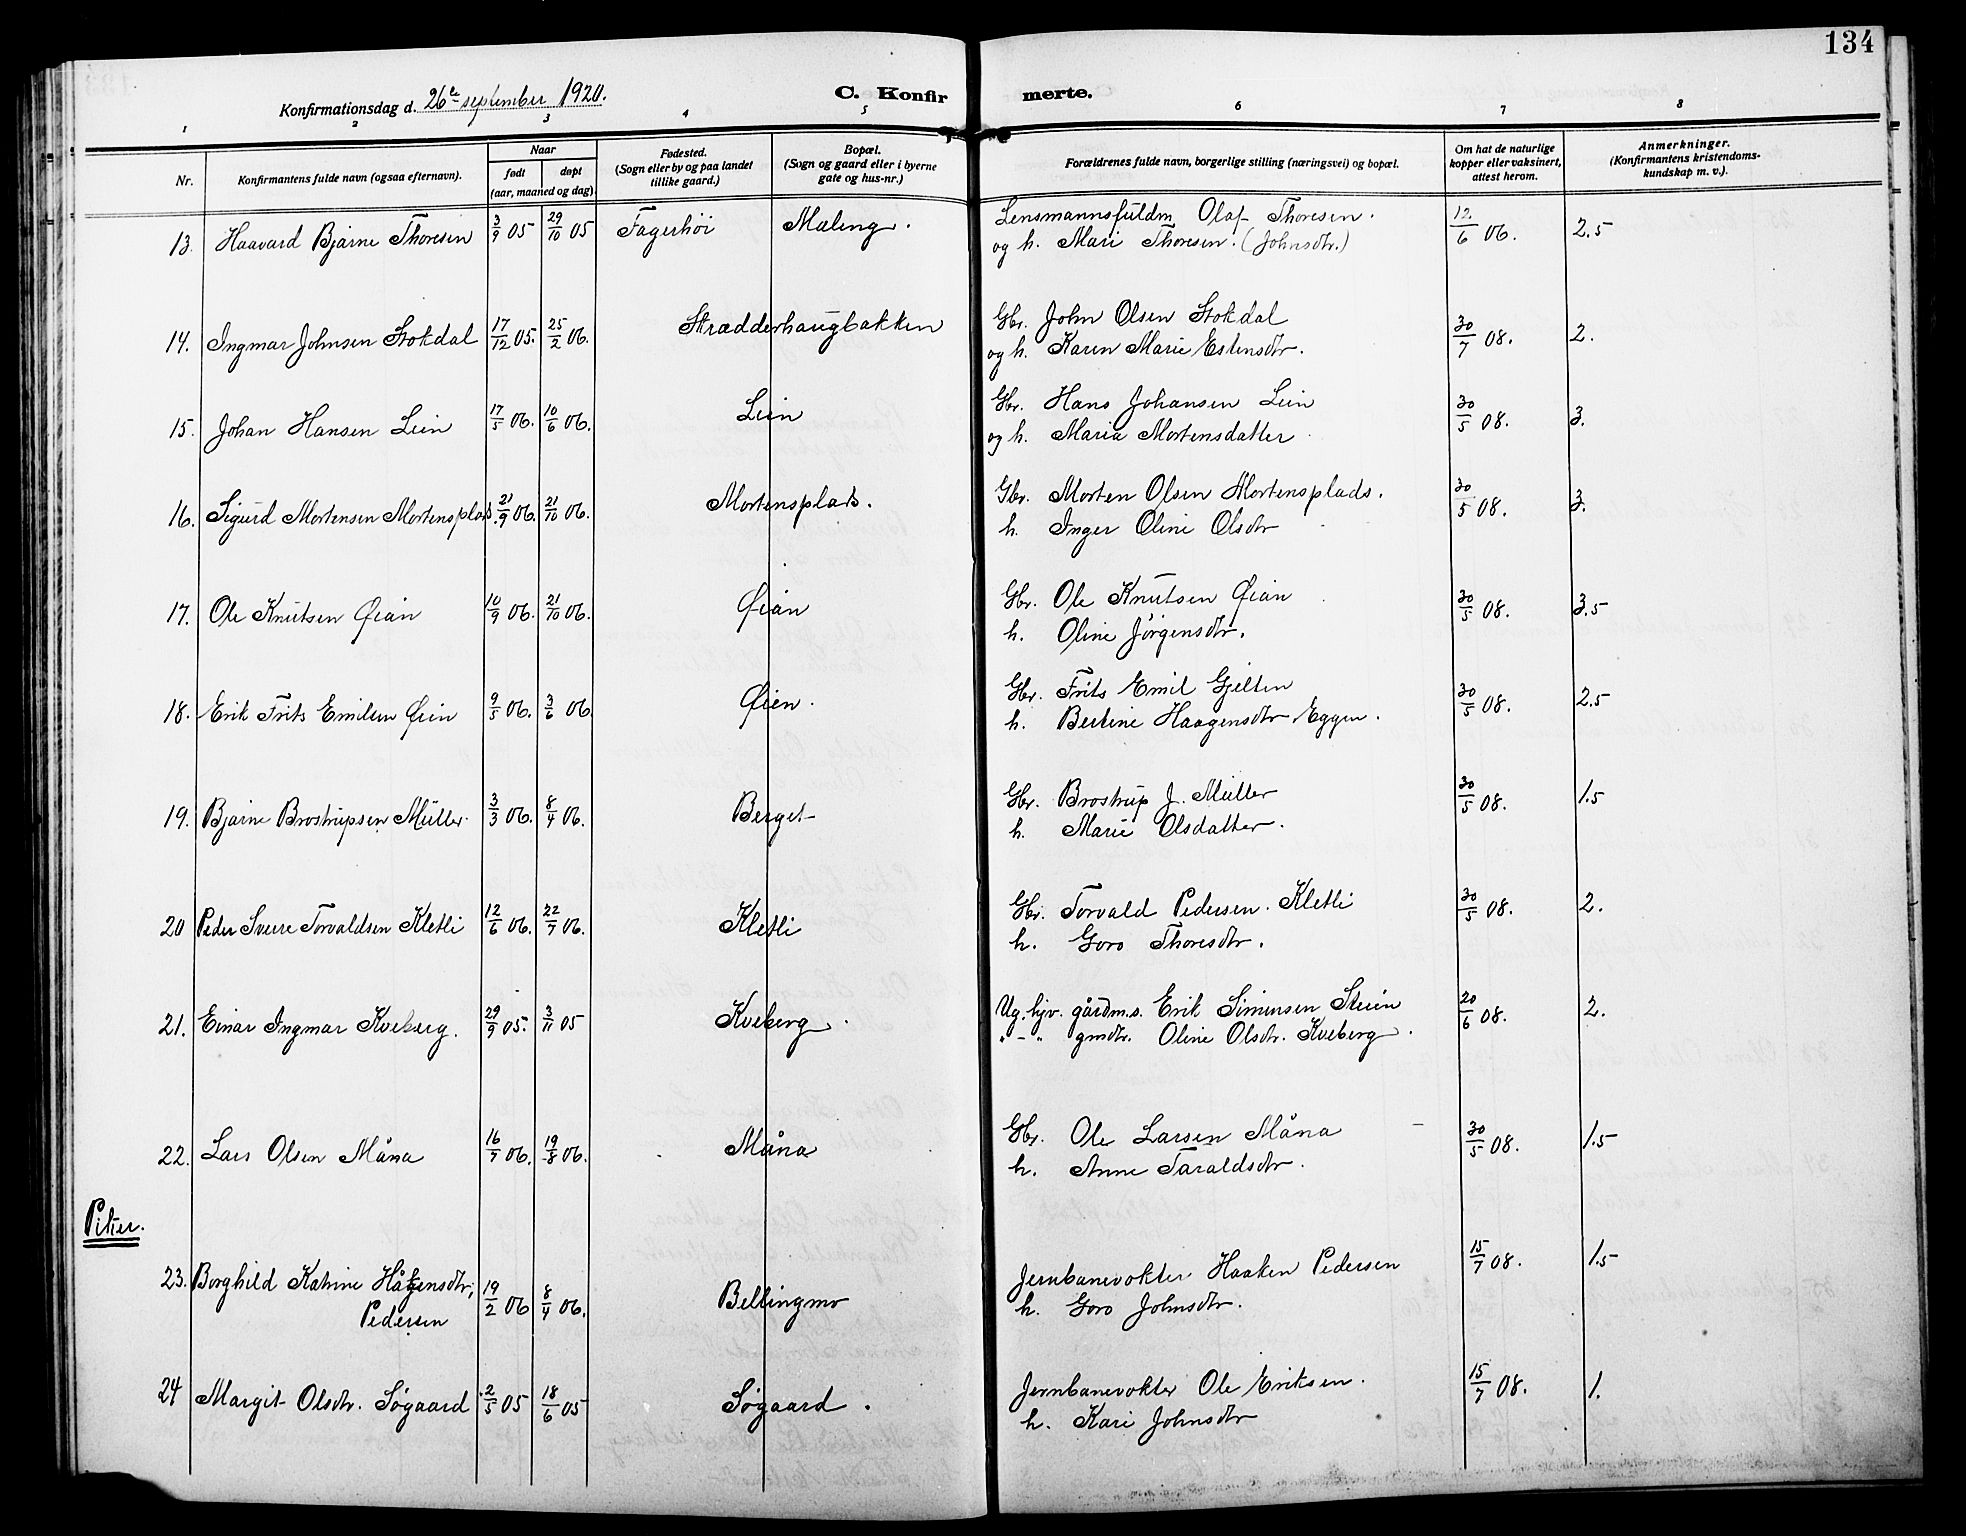 134
Konfirmationsdag d. 26de september 1920.
C. Konfirmerte.
1 2 3 4 5 6 7 8
Nr.
Konfirmantens fulde navn (ogsaa efternavn).
Naar
født døpt
(aar, maaned og dag)
Fødested.
(Sogn eller by og paa landet
tillike gaard.)
Bopæl.
(Sogn og gaard eller i byerne
gate og hus-nr.)
Forældrenes fulde navn, borgerlige stilling (næringsvei) og bopæl.
Om hat de naturlige
kopper eller vaksinert,
attest herom.
Anmerkninger.
(Konfirmantens kristendoms-
kundskap m. v.).
13. Haavard Bjarne Thoresen 3/9 05 29/10 05 Fagerhöi Mæleng. Lensmannsfuldm Olaf Thoresen. 12/6 06. 2.5
og h. Mari Thoresen. (Johnsdtr.)
14. Ingmar Johnsen Stokdal 17/12 05. 25/2 06. Skrædderhaugbakken Gbr. John Olsen Stokdal 30/7 08. 2.
og h. Karen Marie Estensdtr.
15. Johan Hansen Lien 17/5 06. 10/6 06. Lien Gbr. Hans Johansen Lien 30/5 08. 3.
og h. Maria Mortensdatter
16. Sigurd Mortensen Mortensplads. 21/9 06. 21/10 06. Mortensplads. Gbr. Morten Olsen Mortensplads. 30/5 08. 3.
h. Inger Oline Olsdtr
17. Ole Knutsen Øian 10/9 06. 21/10 06. Øian Gbr. Ole Knutsen Øian 30/5 08. 3.5
h. Oline Jörgensdtr.
18. Erik Frits Emilsen Øien 9/5 06. 3/6 06. Øien. Gbr. Frits Emil Gjelten 30/5 08. 2.5
h. Bertine Haagensdtr Eggen.
19. Bjarne Brostrupsen Müller. 3/3 06. 8/4 06. Berget Gbr. Brostrup J. Müller 30/5 08. 1.5
h. Marie Olsdatter.
20 Peder Sverre Torvaldsen Kletli 12/6 06. 22/7 06. Kletli Gbr. Torvald Pedersen. Kletli 30/5 08. 2.
h. Goro Thoresdtr.
21. Einar Ingmar Kveberg. 29/9 05. 3/11 05 Kveberg. Ug. hjv. gårdm.s. Erik Simensen Steien 20/6 08. 2.
" - " gmdtr. Oline Olsdtr. Kveberg.
22. Lars Olsen Måna 16/7 06. 19/8 06. Måna Gbr. Ole Larsen Måna 30/5 08. 1.5
h. Anne Taraldsdtr.
Piker.
23. Borghild Katrine Håkensdtr, 19/2 06 8/4 06. Bellingmo Jernbanevokter Haaken Pedersen 15/7 08. 1.5
Pedersen h. Goro Johnsdtr.
24 Margit Olsdtr. Søgaard 2/5 05 18/6 05 Søgaard. Jernbanevokter Ole Eriksen. 15/7 08. 1.
h. Kari Johnsdtr